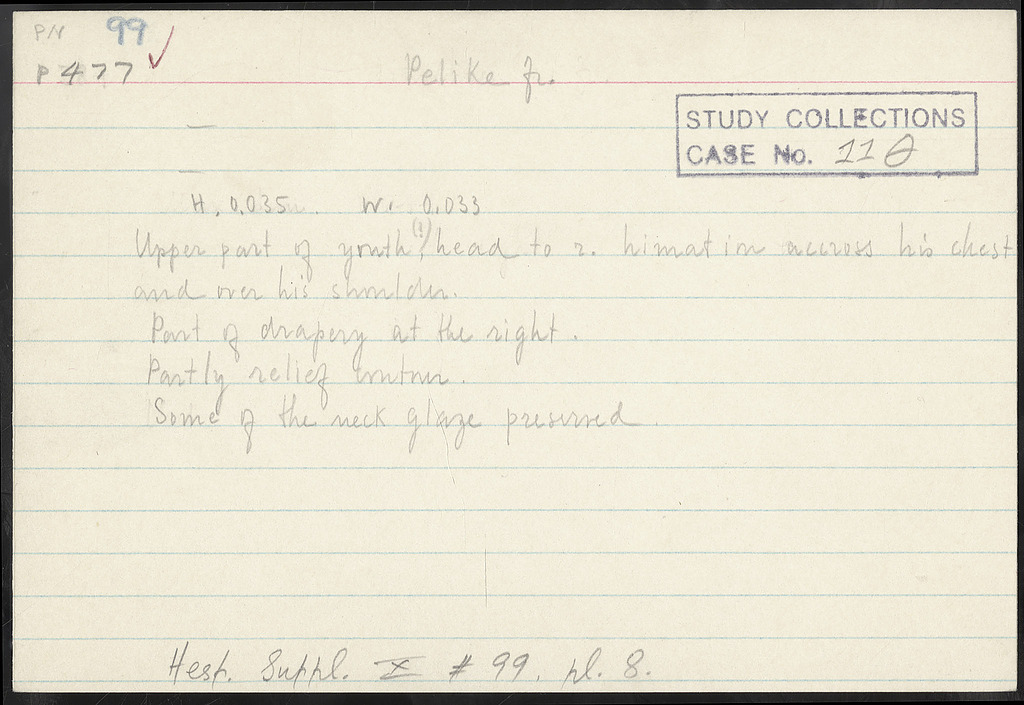 PN 99
P 477
Pelike fr.
STUDY COLLECTIONS
CASE No. 110
H. 0,035 W. 0,033
Upper part of youth(!), head to r. himation accross his chest
and over his shoulder.
Part of drapery at the right.
Partly relief contour.
Some of the neck glaze preserved.
Hesp. Suppl. X # 99, pl. 8.